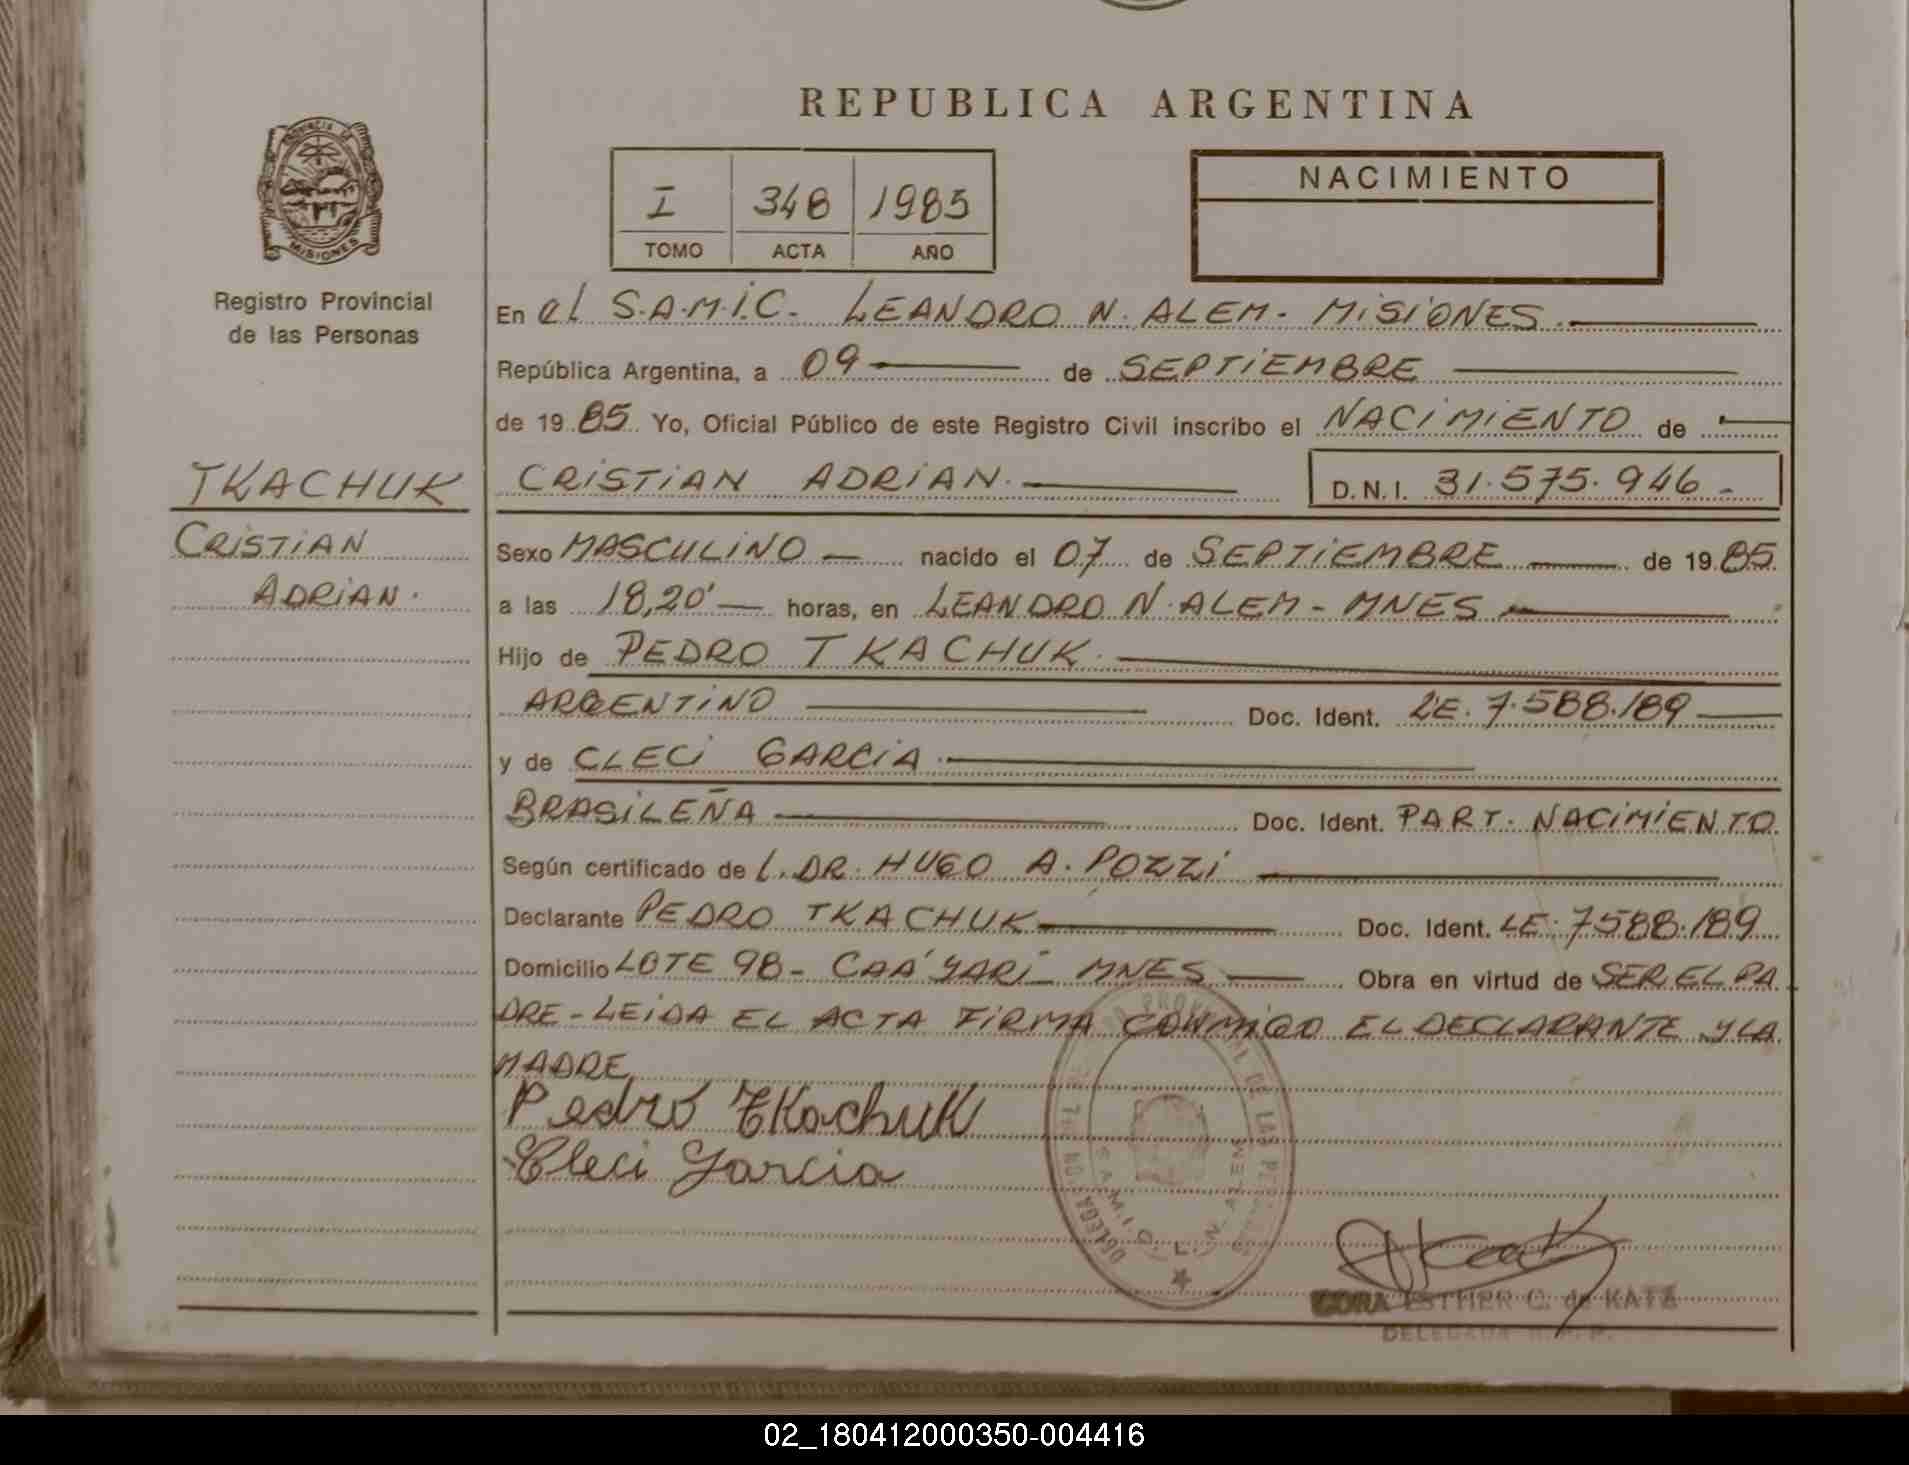 REPUBLICA ARGENTINA
PROVINCIA DE
MISIONES
Registro Provincial
de las Personas
I 348 1985
TOMO ACTA AÑO
NACIMIENTO
En el S.A.M.I.C. LEANDRO N. ALEM - MISIONES
República Argentina, a 09 de SEPTIEMBRE
de 1985 Yo, Oficial Público de este Registro Civil inscribo el NACIMIENTO de
TKACHUK
CRISTIAN ADRIAN. D.N.I. 31.575.946 -
CRISTIAN
ADRIAN.
Sexo MASCULINO nacido el 07 de SEPTIEMBRE de 1985
a las 18,20' horas, en LEANDRO N. ALEM - MNES
Hijo de PEDRO TKACHUK.
ARGENTINO Doc. Ident. LE. 7.588.189
y de CLECI GARCIA.
BRASILEÑA Doc. Ident. PART. NACIMIENTO
Según certificado de L. DR. HUGO A. POZZI
Declarante PEDRO TKACHUK Doc. Ident. LE. 7588.189
Domicilio LOTE 98 - CAA' YARI - MNES Obra en virtud de SER EL PA
DRE - LEIDA EL ACTA FIRMA CONMIGO EL DECLARANTE Y LA
MADRE
Pedro Tkachuk
Cleci Garcia
PROVINCIAL DE LAS PERSONAS
S.A.M.I.C. L. N. ALEM
CORA ESTHER C. de KATZ
DELEGADA R. P. P.
02_180412000350-004416